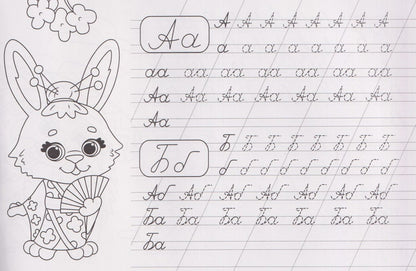 Аа
А А А А А А А А
а а а а а а а а
аа аа аа аа аа аа аа
Аа Аа Аа Аа Аа Аа Аа
Аа
Бб
Б Б Б Б Б Б Б Б
б б б б б б б б б
Аб Аб Аб Аб Аб Аб Аб
Ба Ба Ба Ба Ба Ба Ба
Ба